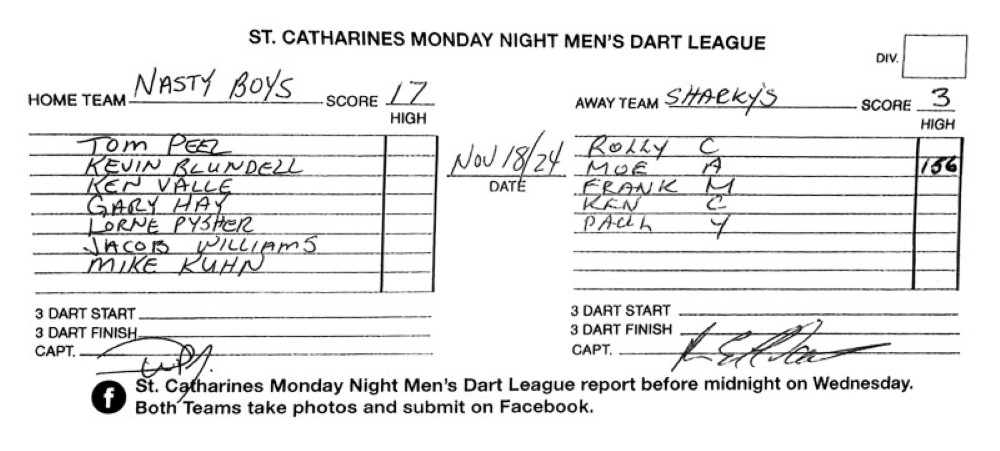 ST. CATHARINES MONDAY NIGHT MEN'S DART LEAGUE
DIV.
HOME TEAM NASTY BOYS SCORE 17
HIGH
AWAY TEAM SHARKY'S SCORE 3
HIGH
TOM PEEL
KEVIN BLUNDELL
KEN VALLE
GARY HAY
LORNE PYSHER
JACOB WILLIAMS
MIKE KUHN
NOV 18/24
DATE
ROLLY C
MOE A 156
FRANK M
KEN C
PAUL Y
3 DART START
3 DART FINISH
CAPT.
3 DART START
3 DART FINISH
CAPT.
f St. Catharines Monday Night Men's Dart League report before midnight on Wednesday.
Both Teams take photos and submit on Facebook.